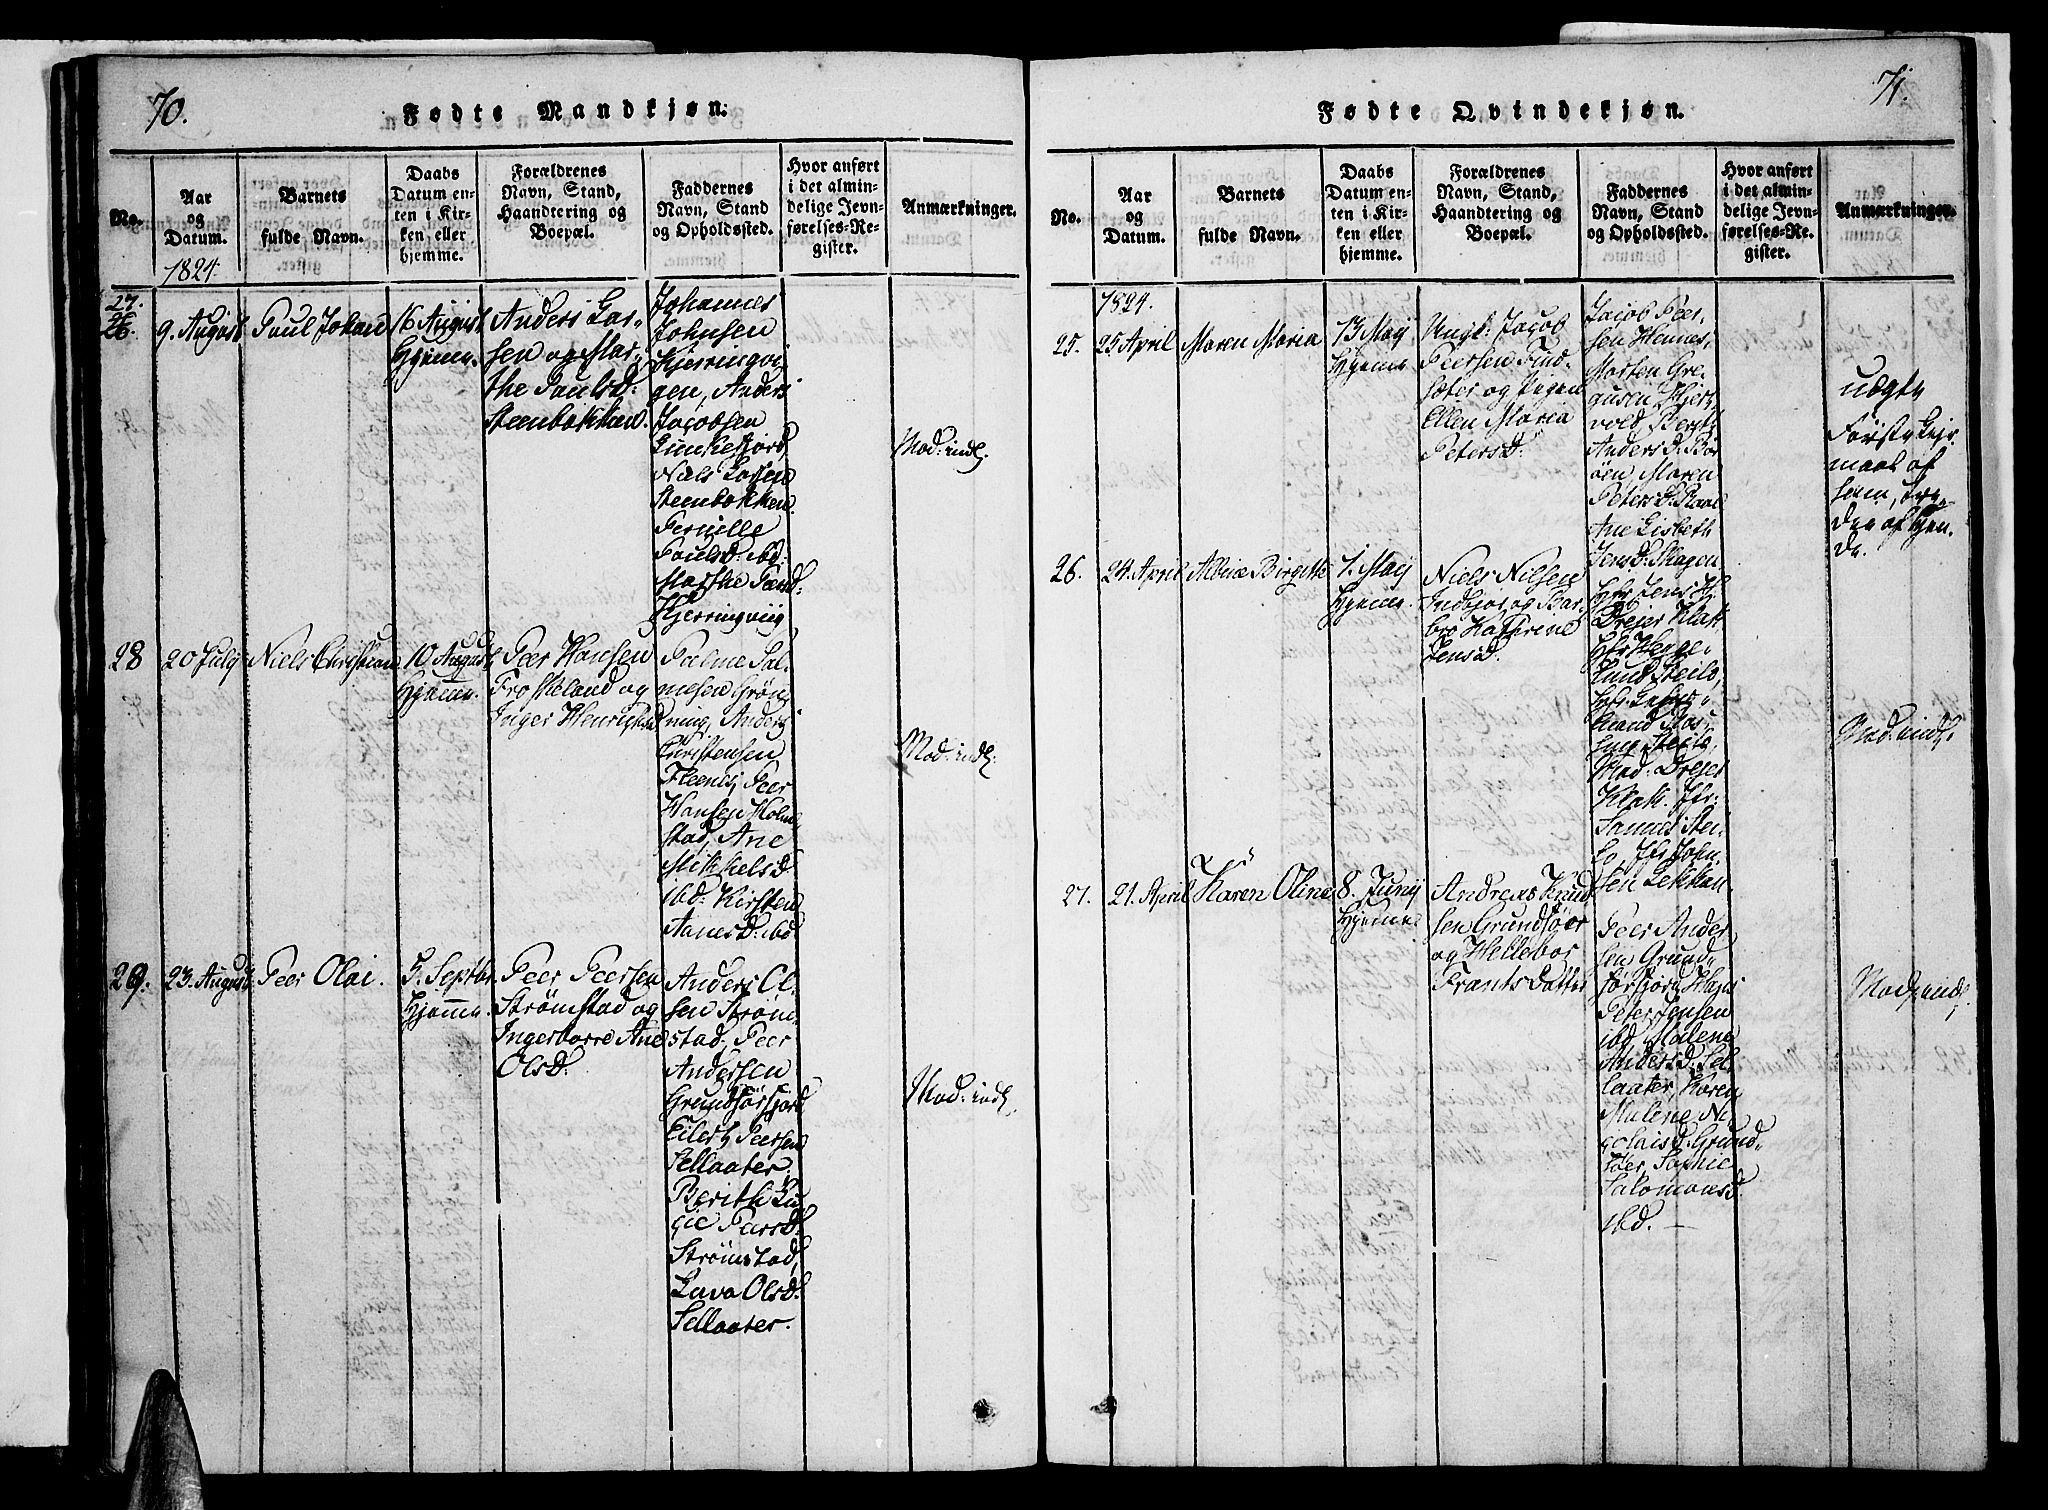 70.
Fødte Mandkjøn.
No.
Aar
og
Datum.
Barnets
fulde Navn.
Daabs
Datum en-
ten i Kir-
ken eller
hjemme.
Forældrenes
Navn, Stand,
Haandtering og
Boepæl.
Faddernes
Navn, Stand
og Opholdssted.
Hvor anført
i det almin-
delige Jevn-
førelses-Re-
gister.
Anmærkninger.
1824.
27.
26.
9. August
Paul Johan
16 August
Hjemme.
Anders Lar-
sen og Mar-
the Paulsd:
Steenbakken.
Johannes
Johnsen
Kjerringvi-
gen, Anders
Jacobsen
Lunkefjord,
Niels Larsen
Steenbakken.
Pernille
Paulsd: ibd:
Marthe
Kjerringviig
Mod: indl.
28
20 July
Niels Christian
10 August
Hjemme.
Peer Hansen
Froskeland og
Inger Henrichsd
Palme Pal-
mesen Grøn-
ning, Anders
Christensen
Fleenes, Peer
Hansen Holm-
stad, Ane
Mikkelsd
ibd: Kirsten
Aanesd: ibd.
Mod: indl.
29.
23. August
Peer Olai.
5. Septbr
Hjemme.
Peer Peersen
Strømstad og
Ingeborre Ane
Olsd.
Anders Ol-
sen Strøm-
stad, Peer
Andersen
Grundførfjord
Eilert Peersen
Sellaater.
Berith Lu-
cie Peersd.
Strømstad,
Lava Olsd.
Sellaater.
Mod: indl.
71.
Fødte Qvindekjøn.
No.
Aar
og
Datum.
Barnets
fulde Navn.
Daabs
Datum en-
ten i Kir-
ken eller
hjemme.
Forældrenes
Navn, Stand,
Haandtering og
Boepæl.
Faddernes
Navn, Stand
og Opholdssted.
Hvor anført
i det almin-
delige Jevn-
førelses-Re-
gister.
Anmærkninger.
1824.
25.
25 April
Maren Maria
13 Maij
Hjemme
Ungk: Jacob
Peersen Find-
sæter og Pigen
Ellen Maria
Petersd.
Jacob Peer-
sen Hennes,
Morten Gre-
gusen
vold, Berit
Anders D. Bør
øen, Maren
Peters D.
Ane Lisbeth
Jensd. Skagen
uægte
Første Leier-
maal af
ham, tre-
die af hen-
de.
26.
24. April
Albine Birgitte
1. Maij
Hjemme.
Niels Nilsen
Indbjør og Bar-
bro Kathrine
Jensd.
Hfr. Jens H.
Drejer Klak.
Hfr. Hegge-
lund Steilo,
Mad: Drejer
Klak. Jfr:
Steilo, Jfr. John-
sen Lekkan
Mod: indl.
27.
21. April
Karen Oline
8. Junij
Hjemme.
Andreas Knud
sen Grundføer
og Hellebor
Frants Datter
Peer Ander
sen Grund-
førfjord, Hans
Peter Jensen
ibd, Malene
Andersd. Sel-
laater, Karen
Malene Ni-
colaisd. Grund-
føer, Sophie
Salomonsd.
ibd.
Mod: indl.